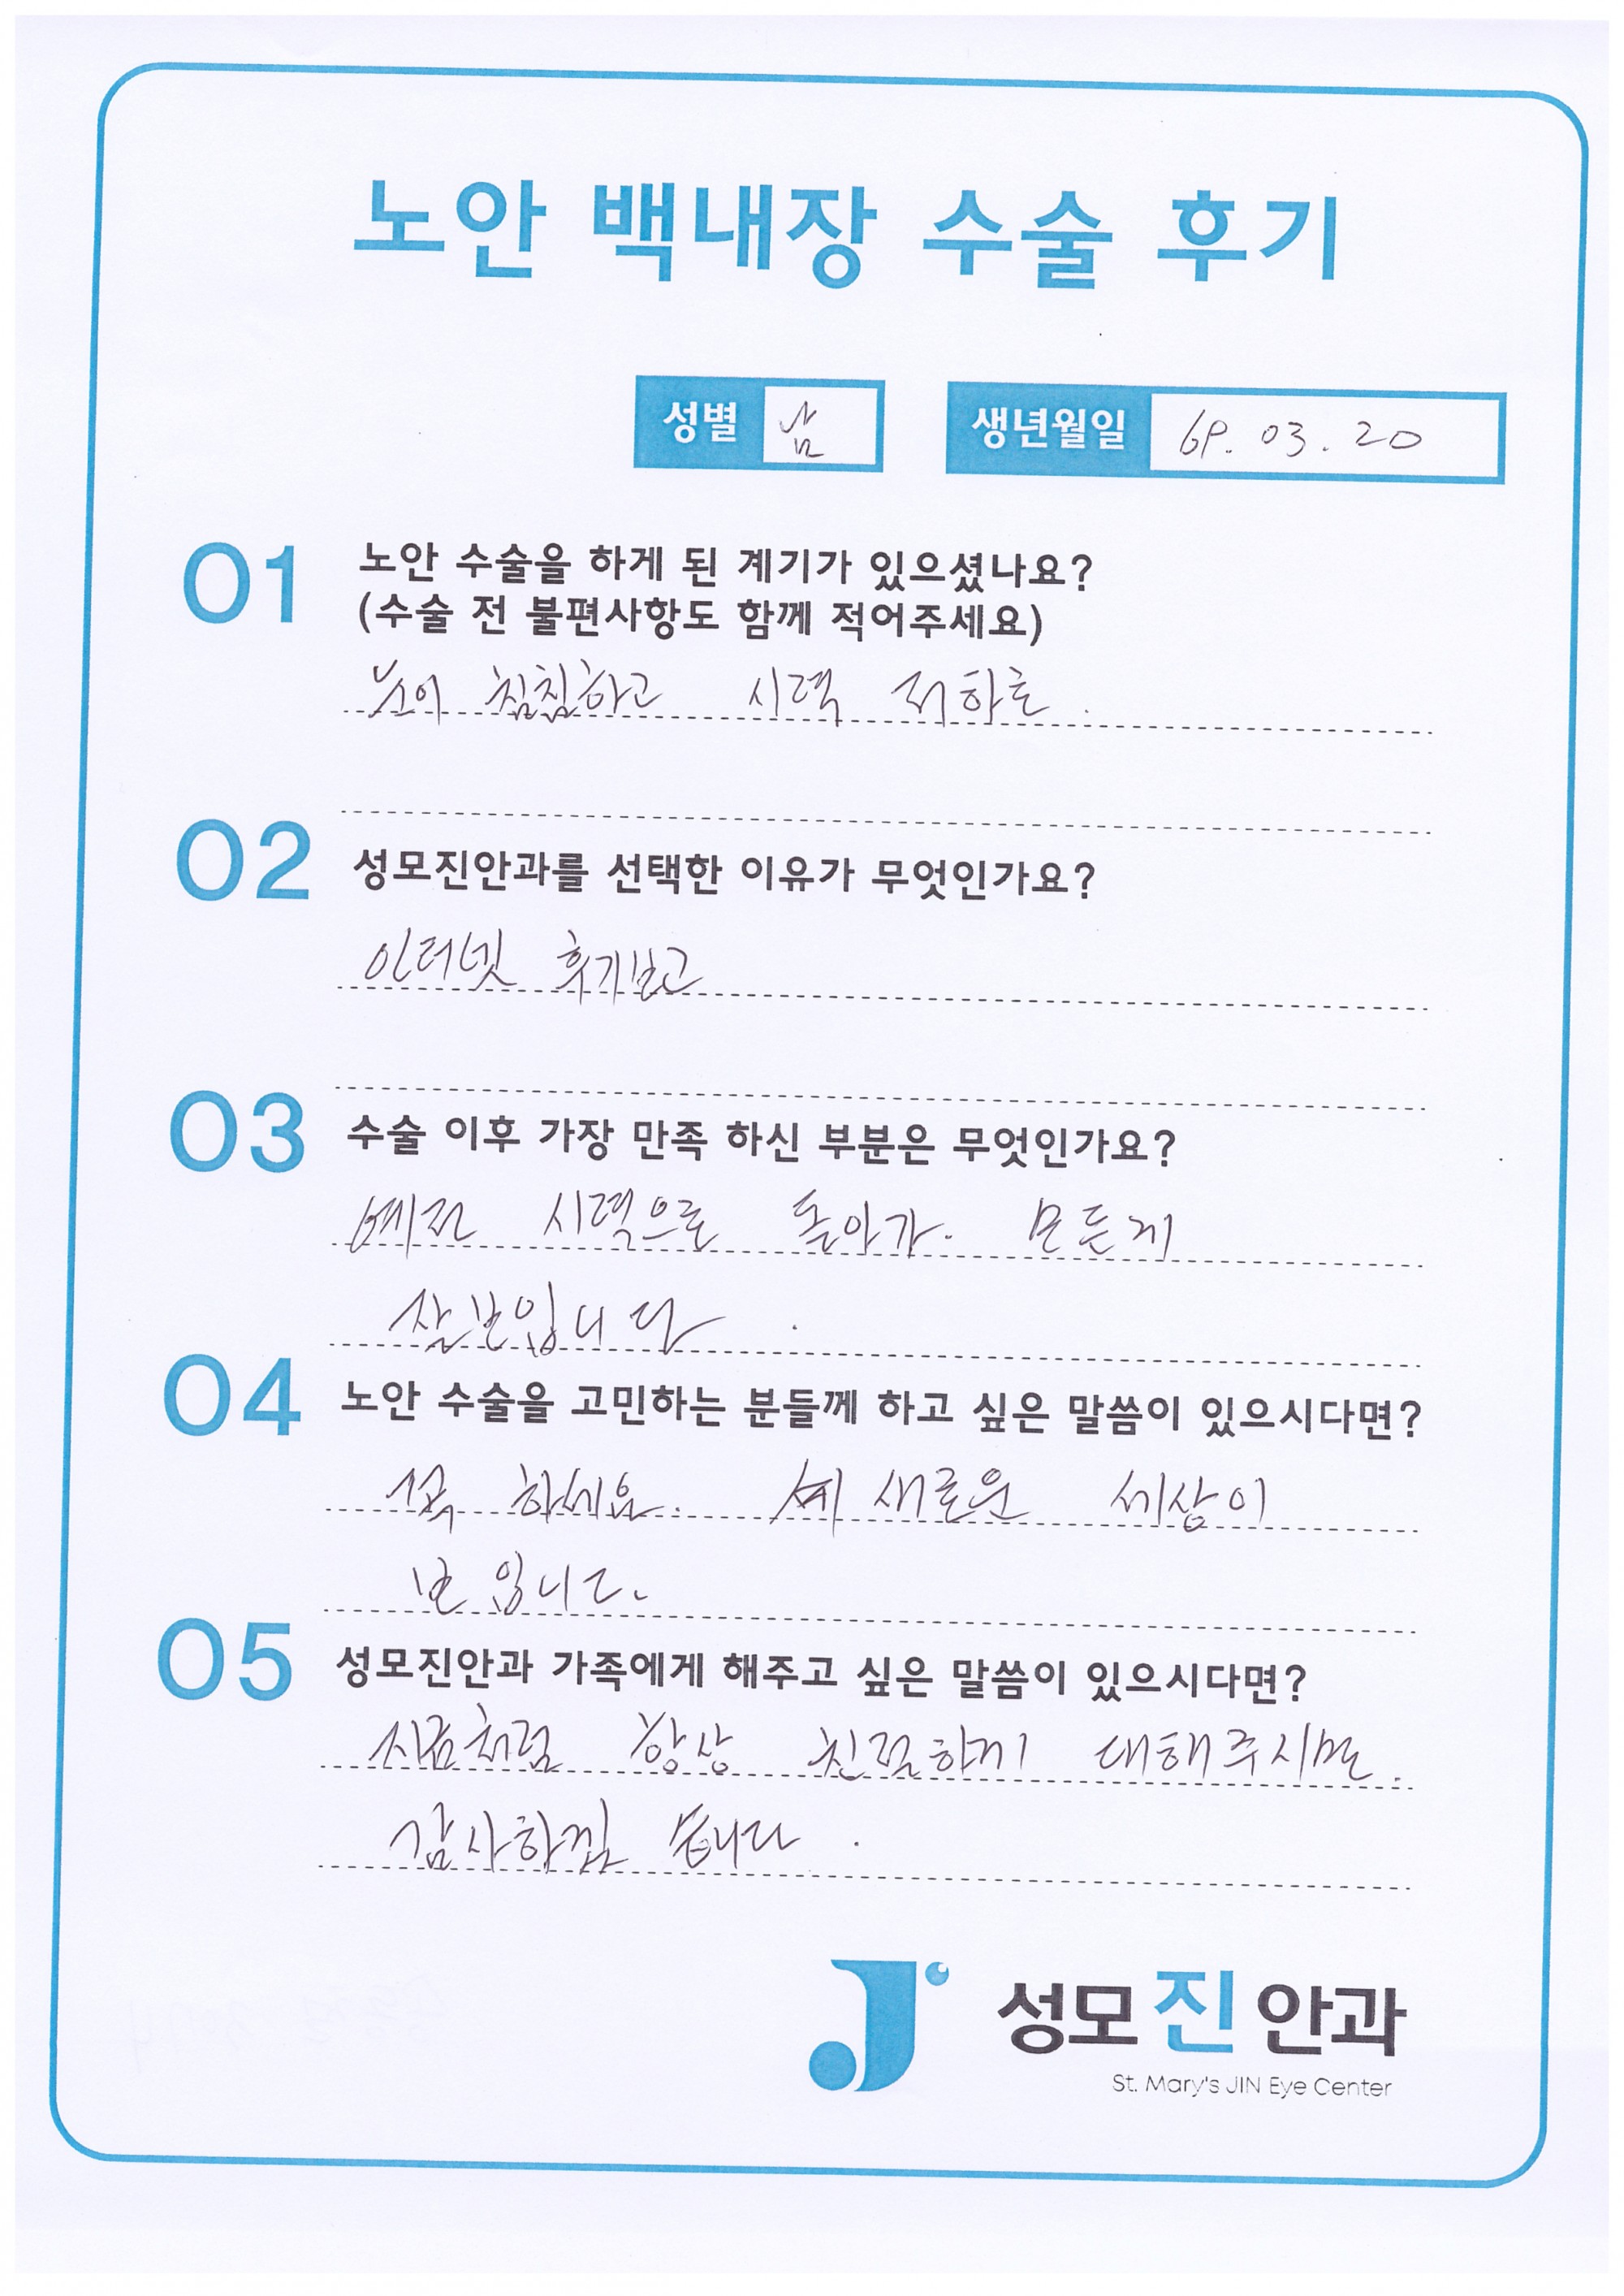 노안 백내장 수술 후기
성별 남 생년월일 69. 03. 20
01 노안 수술을 하게 된 계기가 있으셨나요?
(수술 전 불편사항도 함께 적어주세요)
눈이 침침하고 시력 저하로.
02 성모진안과를 선택한 이유가 무엇인가요?
인터넷 후기보고
03 수술 이후 가장 만족 하신 부분은 무엇인가요?
예전 시력으로 돌아가. 모든게
잘보입니다.
04 노안 수술을 고민하는 분들께 하고 싶은 말씀이 있으시다면?
꼭 하세요. 새로운 세상이
보입니다.
05 성모진안과 가족에게 해주고 싶은 말씀이 있으시다면?
지금처럼 항상 친절하게 대해주시면.
감사하겠 습니다.
성모진안과
St. Mary's JIN Eye Center